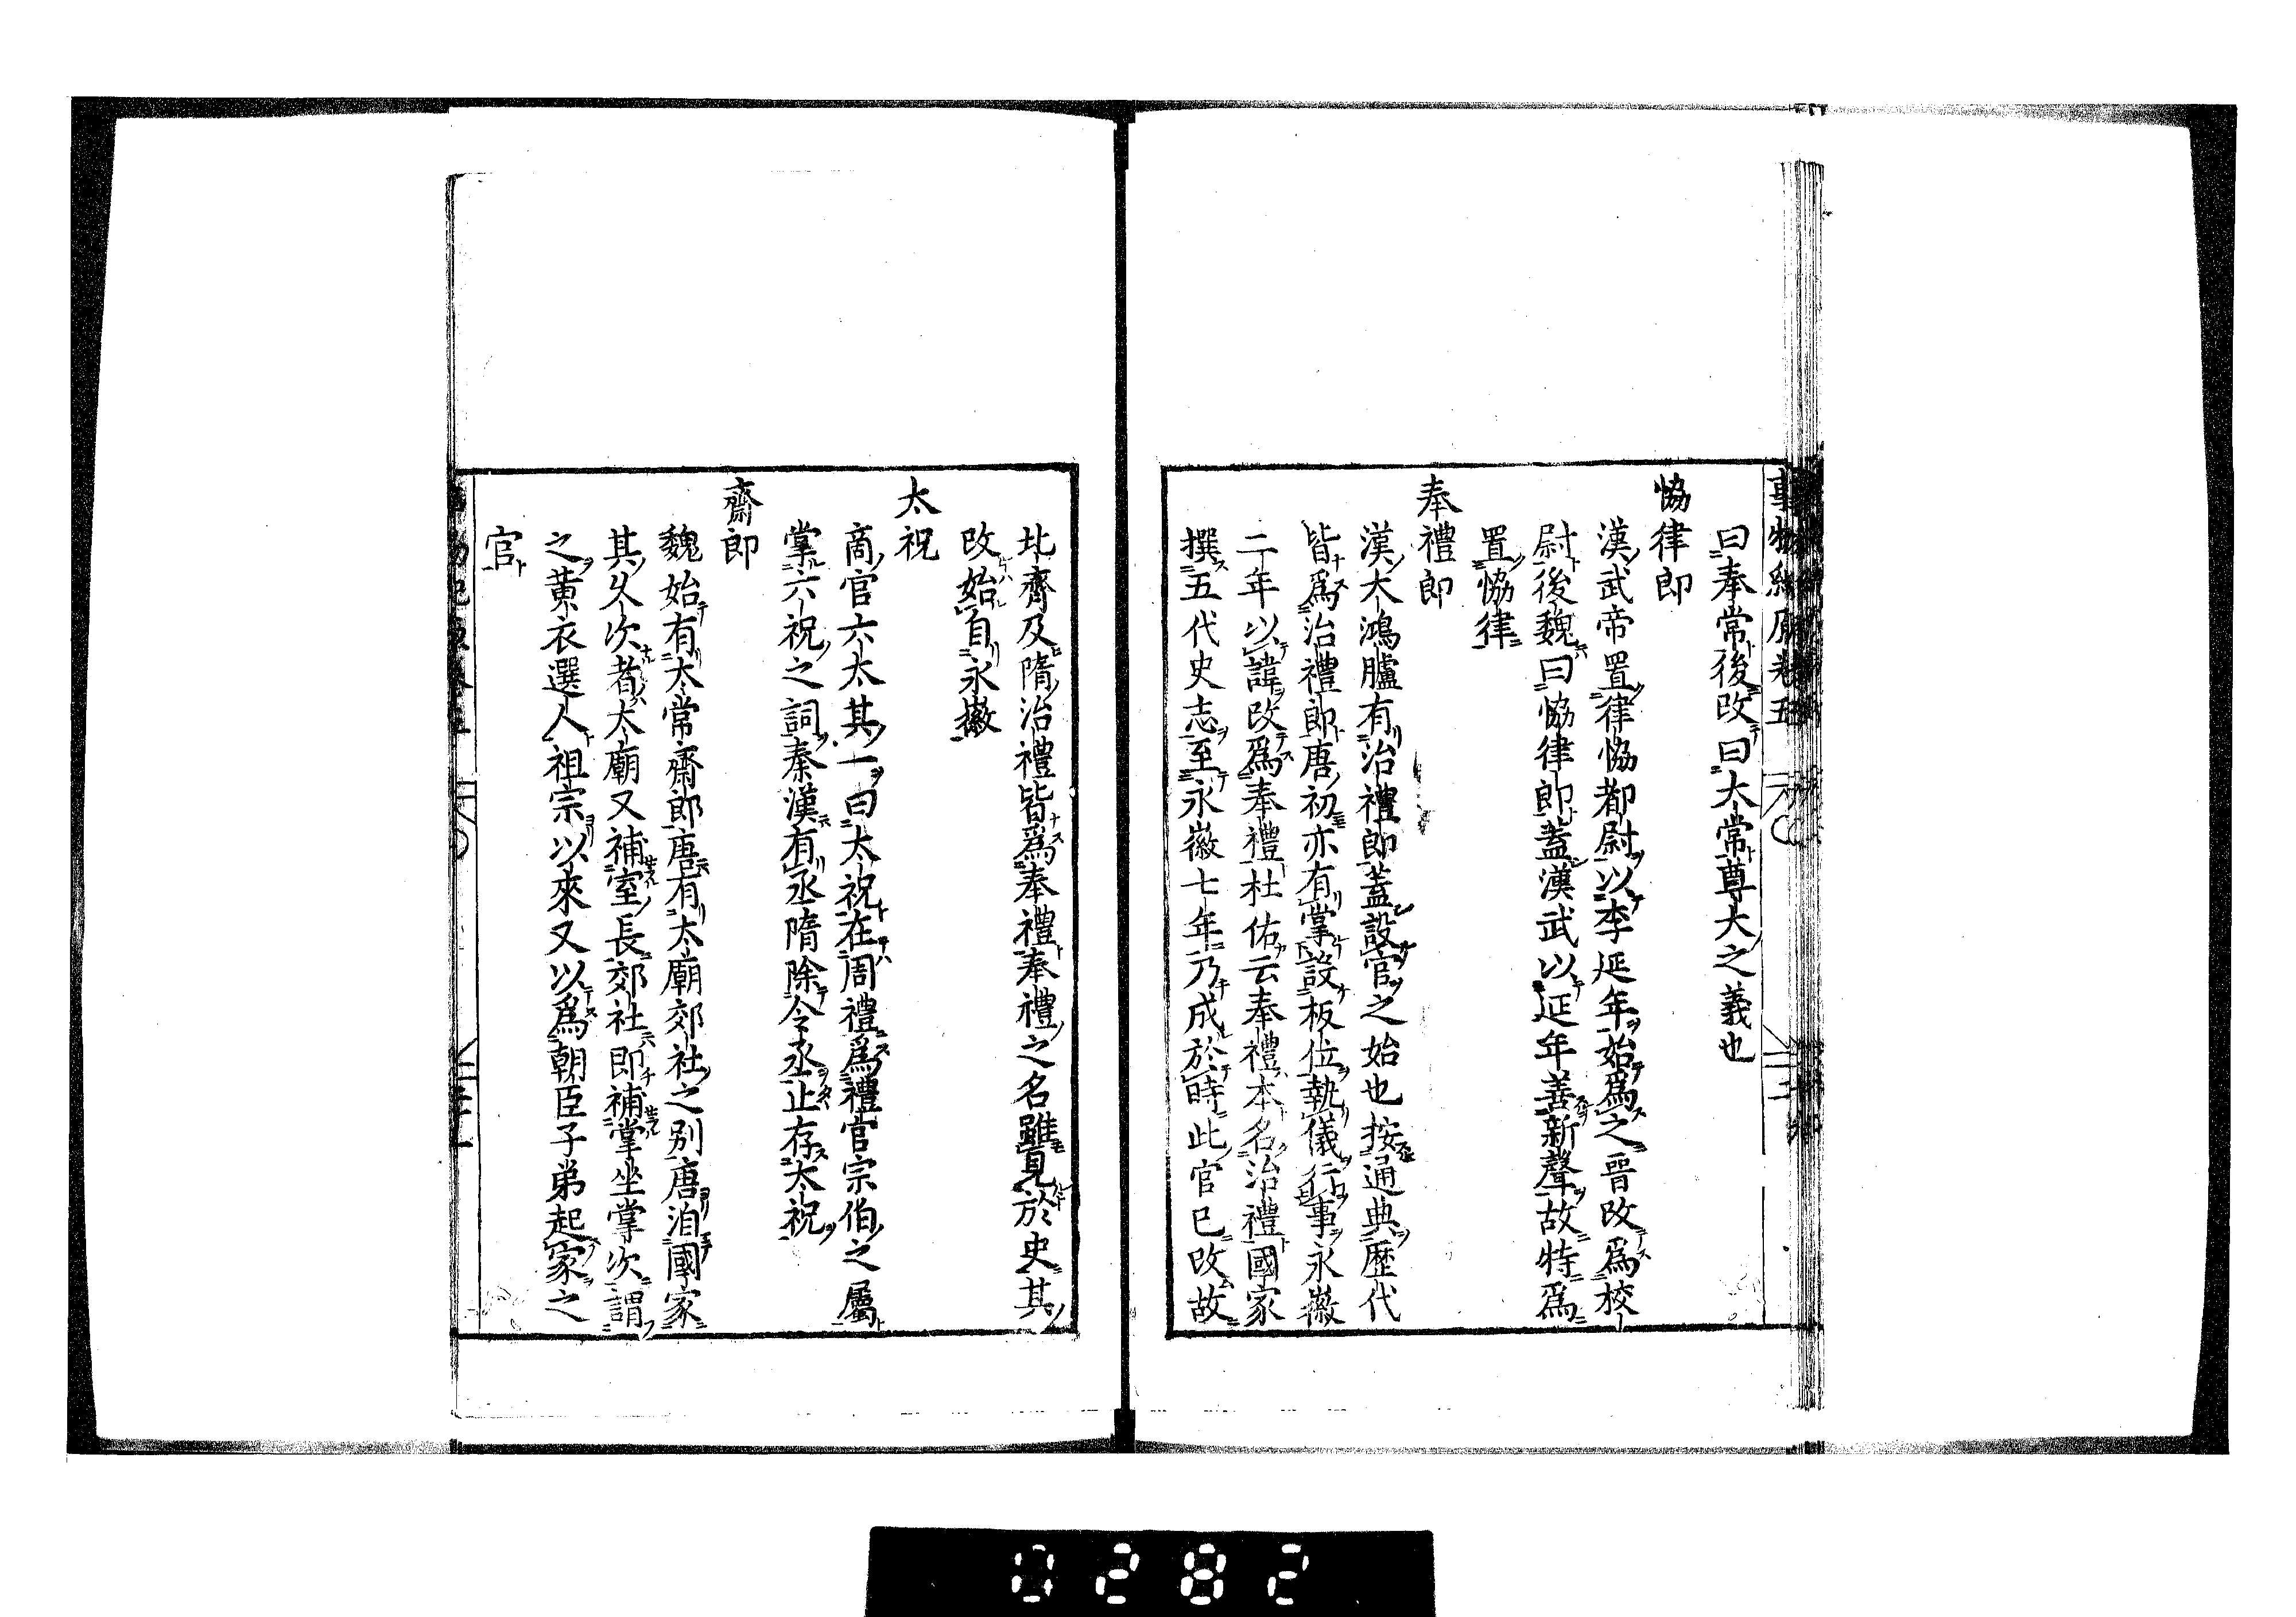 事物紀原卷五
曰奉常後改曰大常尊大之義也
恊律郎
漢武帝置律恊都尉以李延年始爲之晉改爲校
尉後魏曰恊律郎蓋漢武以延年善新聲故特爲
置恊律
奉禮郎
漢大鴻臚有治禮郎蓋設官之始也按通典歷代
皆爲治禮郎唐初亦有掌設板位執儀行事永徽
二年以諱改爲奉禮杜佑云奉禮本名治禮國家
撰五代史志至永徽七年乃成於時此官已改故
北齊及隋治禮皆爲奉禮奉禮之名雖見於史其
改始自永徽
太祝
商官六太其一曰太祝在周禮爲禮官宗伯之屬
掌六祝之詞秦漢有丞隋除令丞止存太祝
齋郎
魏始有太常齋郎唐有太廟郊社之別唐洎國家
其久次者太廟又補室長郊社即補掌坐掌次謂
之黄衣選人祖宗以來又以爲朝臣子弟起家之
官
0282